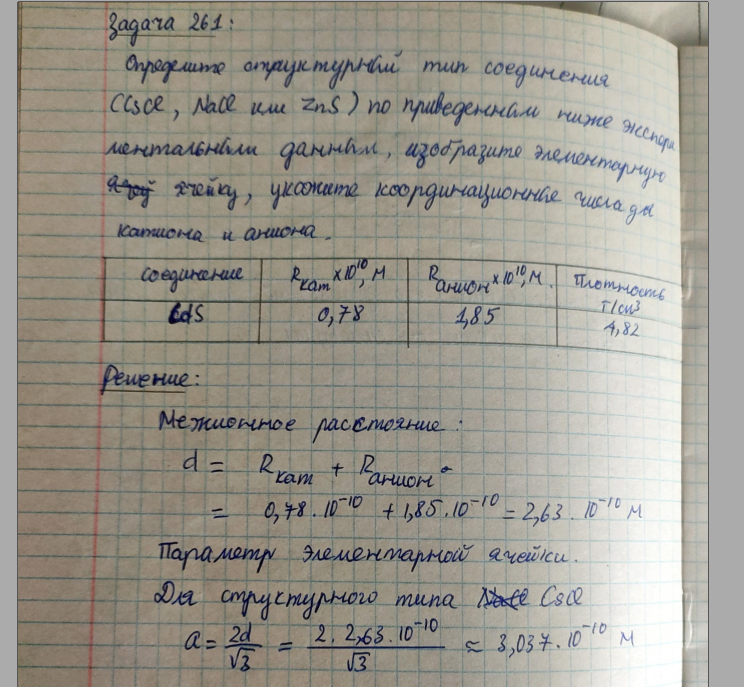 Задача 261:
Определите структурный тип соединения
(CsCl, NaCl или ZnS) по приведенным ниже экспери
ментальным данным, изобразите элементарную
ячейку, укажите координационные числа для
катиона и аниона.
Соединение Rкат ×10¹⁰, м Rанион ×10¹⁰, м. Плотность г/см³
CdS 0,78 1,85 4,82
Решение:
Межионное расстояние:
d = Rкат + Rанион
= 0,78 · 10⁻¹⁰ + 1,85 · 10⁻¹⁰ = 2,63 · 10⁻¹⁰ м
Параметр элементарной ячейки.
Для структурного типа CsCl
a = 2d/√3 = 2 · 2,63 · 10⁻¹⁰/√3 ≈ 3,037 · 10⁻¹⁰ м